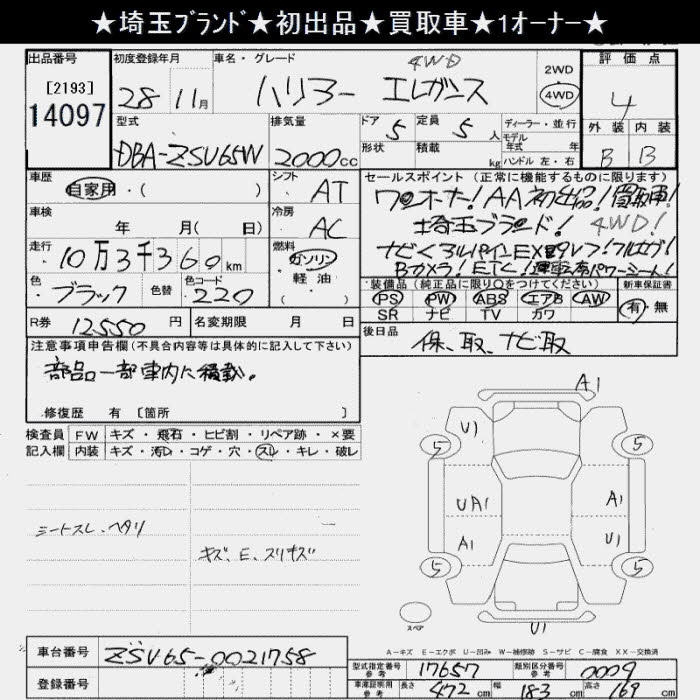 ★埼玉ブランド★初出品★買取車★1オーナー★
出品番号 初度登録年月 車名・グレード 4WD 2WD 評価点
[2193] 28 11月 ハリアー エレガンス 4WD 4
14097 型式 排気量 ドア 5 定員 5人 ディーラー・並行 外装 内装
モデル年式 年
DBA-ZSU65W 2000cc 形状 積載 kg ハンドル 左・右 B B
車歴 シフト セールスポイント(正常に機能するものに限ります)
自家用・( ) AT ワンオーナー!AA初出品!買取車!
車検 年 月( 日) 冷房 AC 埼玉ブランド!4WD!
走行 燃料 ナビ
10万3千360km ガソリン Bカメラ!ETC!
色 ブラック 色替 色コード 220 軽油 ( ) 装備品(純正品に限り○をつけてください) 新車保証書
PS PW ABS エアB AW 有・無
SR ナビ TV カワ
R券 12550円 名変期限 月 日 後日品
保、取、ナビ取
注意事項申告欄(不具合内容等は具体的に記入して下さい)
部品一部車内に積載。
修復歴 有 [箇所 ]
検査員 FW キズ・飛石・ヒビ割・リペア跡・×要
記入欄 内装 キズ・汚れ・コゲ・穴・スレ・キレ・破レ
シートスレ、ヘタリ
キズ、E、スリキズ
A1
U1
5 5
UA1 A1
A1 U1
5 5
スペア
U1
A-キズ E-エクボ U-凹み W-補修跡 S-サビ C-腐食 XX-交換済
車台番号 ZSU65-0021758
登録番号
型式指定番号 参考 17657 類別区分番号 参考 0009
車庫証明用 参考 長さ 472cm 幅 183cm 高さ 169cm